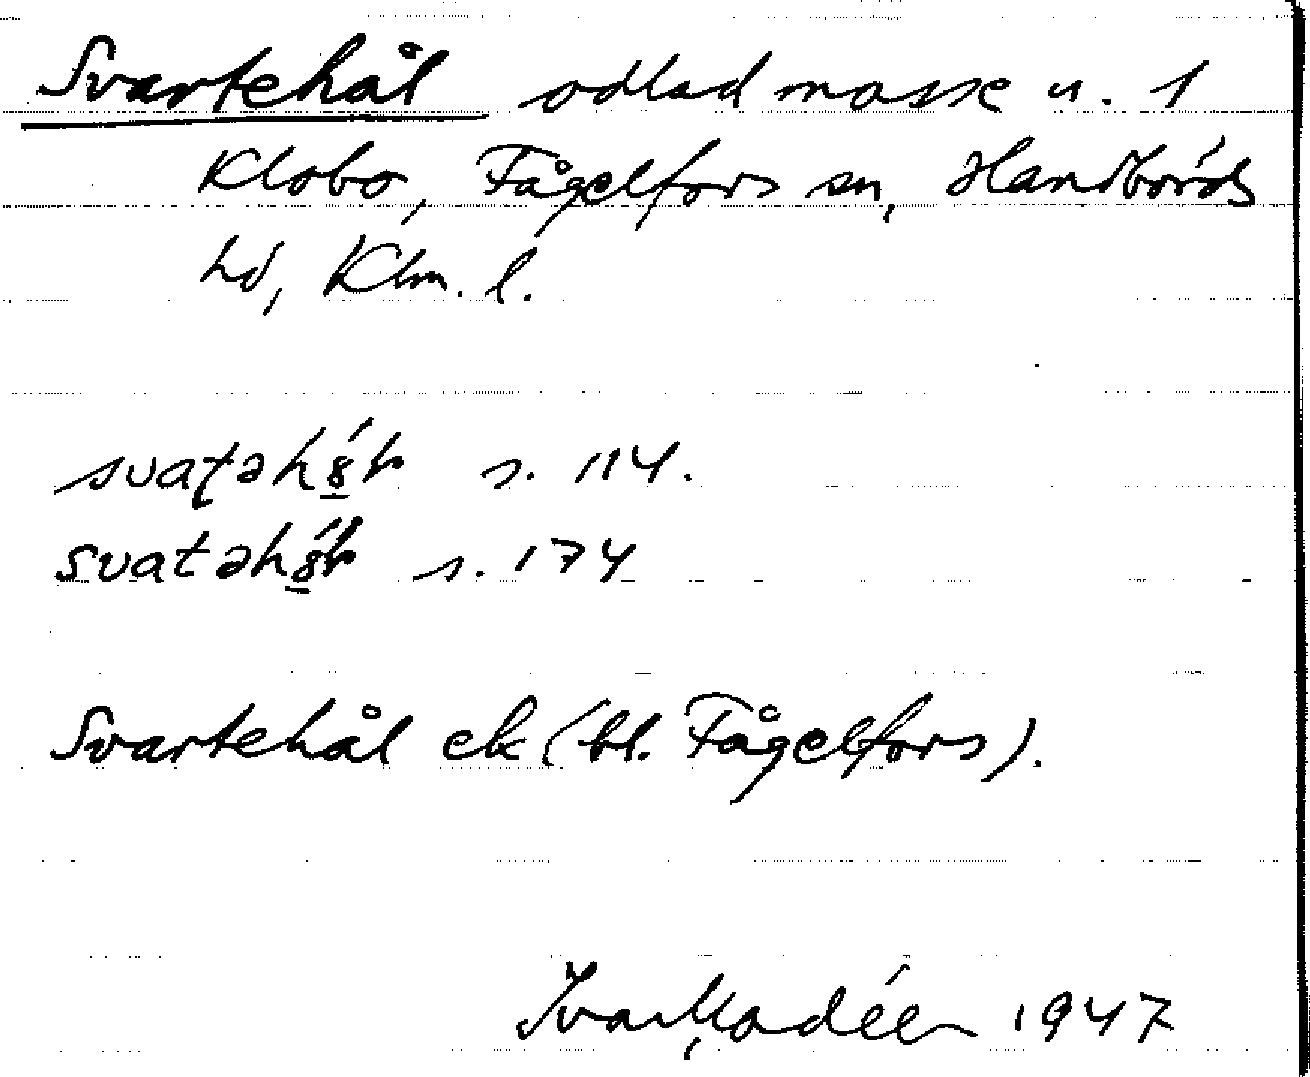 Svartehål odlad mosse u. 1
Klobo, Fågelfors sn, Handbörds
hd, Klm. l.
s. 114.
s. 174
Svartehål ek (bl. Fågelfors).
Ivar Modéer 1947